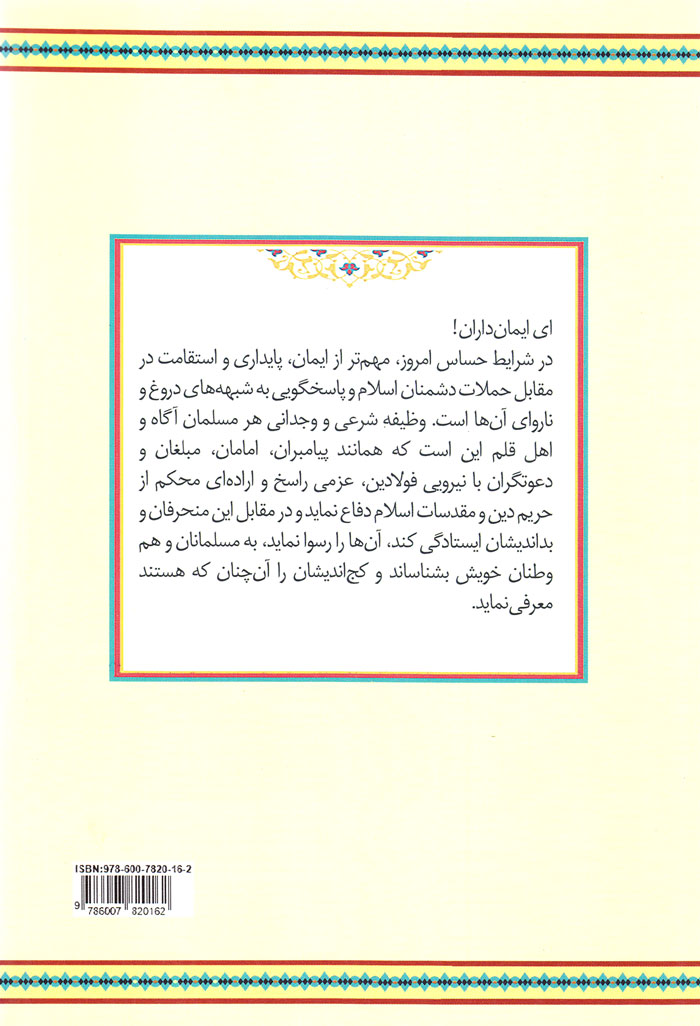 ای ایمان‌داران!
در شرایط حساس امروز، مهم‌تر از ایمان، پایداری و استقامت در
مقابل حملات دشمنان اسلام و پاسخگویی به شبهه‌های دروغ و
ناروای آن‌ها است. وظیفه شرعی و وجدانی هر مسلمان آگاه و
اهل قلم این است که همانند پیامبران، امامان، مبلغان و
دعوتگران با نیرویی فولادین، عزمی راسخ و اراده‌ای محکم از
حریم دین و مقدسات اسلام دفاع نماید و در مقابل این منحرفان و
بداندیشان ایستادگی کند، آن‌ها را رسوا نماید، به مسلمانان و هم
وطنان خویش بشناساند و کج‌اندیشان را آن‌چنان که هستند
معرفی‌نماید.
ISBN:978-600-7820-16-2
9 786007 820162